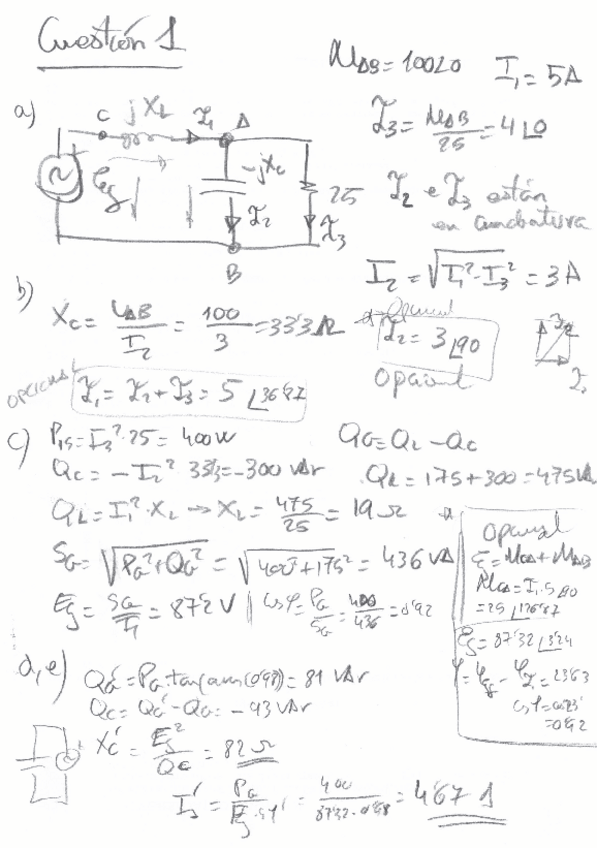 Cuestión 1
U_AB = 100∠0
I_1 = 5A
a)
C jX_L I_1 A
E_g -jX_C 25
I_2 I_3
B
I_3 = U_AB/25 = 4∠0
I_2 e I_3 están
en cuadratura
I_2 = √(I_1² - I_3²) = 3A
b)
X_C = U_AB/I_2 = 100/3 = 33'3 Ω
Opcional
I_2 = 3∠90
Opcional
OPCIONAL
I_1 = I_2 + I_3 = 5∠36'87
c) P_25 = I_3²·25 = 400W
Q_G = Q_L - Q_C
Q_C = -I_2² 33'3 = -300 VAr
Q_L = 175 + 300 = 475 VA
Q_L = I_1²·X_L → X_L = 475/25 = 19 Ω
S_G = √(P_G² + Q_G²) = √(400² + 175²) = 436 VA
E_g = S_G/I_1 = 87'2 V
cos φ = P_G/S_G = 400/436 = 0'92
Opcional
E_g = U_CA + U_AB
= 25∠126'87
E_g = 87'32∠13'24
φ = φ_Eg - φ_I = 23'63
= 0'92
d, e) Q_G' = P_G·tan(acos(0'98)) = 81 VAr
Q_C = Q_G' - Q_G = -93 VAr
X_C' = E_g²/Q_C = 82 Ω
= 400/(87'32·0'98) = 4'67 A